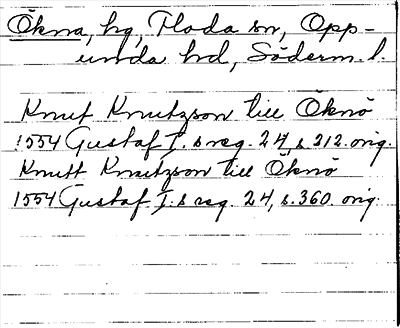 Ökna, hg, Floda sn, Opp-
unda hd, Söderm. l.
Knut Knutzson till Öknö
1554 Gustaf I. s reg. 24, s. 212. orig.
Knutt Knutzson till Öknö
1554 Gustaf I. s reg. 24, s. 360. orig.